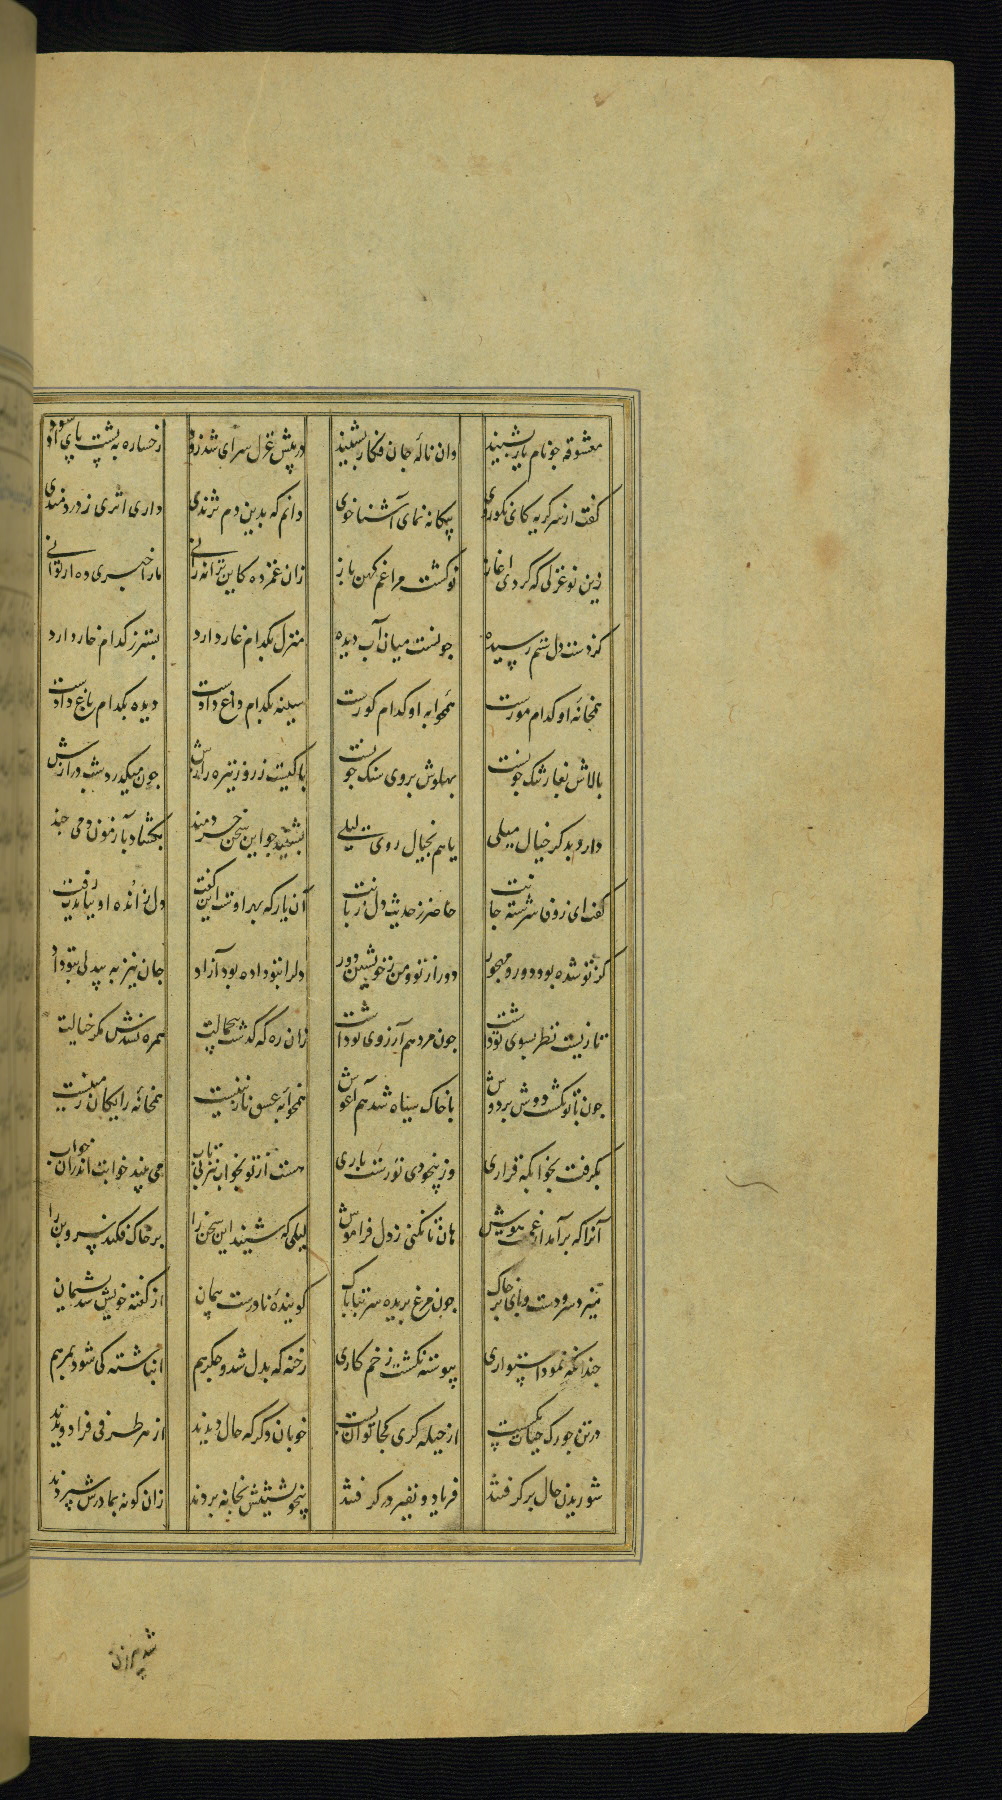 معشوقه جو نام یار بشنید وان نالهٔ جان فکار بشنید در پیش غزل سرای شد زود رخساره به پشت پای او سود
کفت از سر کریه کای نکوروی بیکانه نمای آشنا خوی دانم که بدین دم نژندی داری اثری ز دردمندی
زین نو غزلی که کردی اغاز نو کشت مرا غم کهن باز زان غمزده کاین ترانه رانی مارا خبری ده ار توانی
کز دست دل ستم رسیده جونست میان آب دیده منزل بکدام غار دارد بستر ز کدام خار دارد
همخانهٔ او کدام مورست همخوابه او کدام کورست سینه بکدام داغ دادست دیده بکدام باغ دادست
بالاش نغار تنک جونست بهلوش بروی سنک جونست با کیست ز روز تیره رازش جون میکذرد شب درازش
دارد بدکر خیال میلی یا هم بخیال روی لیلی بشنید جو این سخن خردمند بکشاد بآزمون دمی جند
کفت ای ز وفا سرشته جانت حاضر ز حدیث دل زبانت آن یار که بهر اوت این کفت دل زانده او بباندت رفت
کز تو شده بود دور و مهجور دور از تو و من ز خویشتن دور دل را بتو داده بود آزاد جان نیز به بیدلی بتو داد
تا زیست نظر بسوی تو داشت جون مرد هم آرزوی تو داشت زان ره که کذشت بیجمالت همره نشدش مکر خیالت
جون با تو نکشت دوش بر دوش با خاک سیاه شد هم آغوش همخوابه عسق نازنینیست همخانهٔ رایکان زمینیست
بکرفت بخوابکه قراری وز بیخودی تو رست باری هست از تو بخواب تنزبی تاب می بیند خوابت اندران خواب
آنرا که برآمد از غمت هوش هان تا نکنی ز دل فراموش لیلی که شنید این سخن را بر خاک فکند نسروین را
میزد سر و دست و پای بر خاک جون مرغ بریده سر تباباک کویندهٔ نادرست پیمان از کفته خویش شد بشیمان
جندانکه نمود استواری بیوسته نکشت زخم کاری رخنه که بدل شد و جکر هم انباشته کی شود بمرهم
در تن جو رک حیات بکسست از حیله کری کجا توان بست خوبان دکر که حال دیدند از هر طرفی فرا دویدند
شوریدن حال بر کرفتند فریاد و نفیر در کرفتند بیخویشتنش بخانه بردند زان کونه بمادرش سپردند